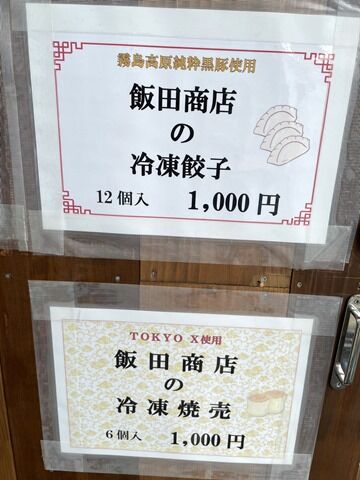 霧島高原純粋黒豚使用
飯田商店
の
冷凍餃子
12個入 1,000円
TOKYO X使用
飯田商店
の
冷凍焼売
6個入 1,000円